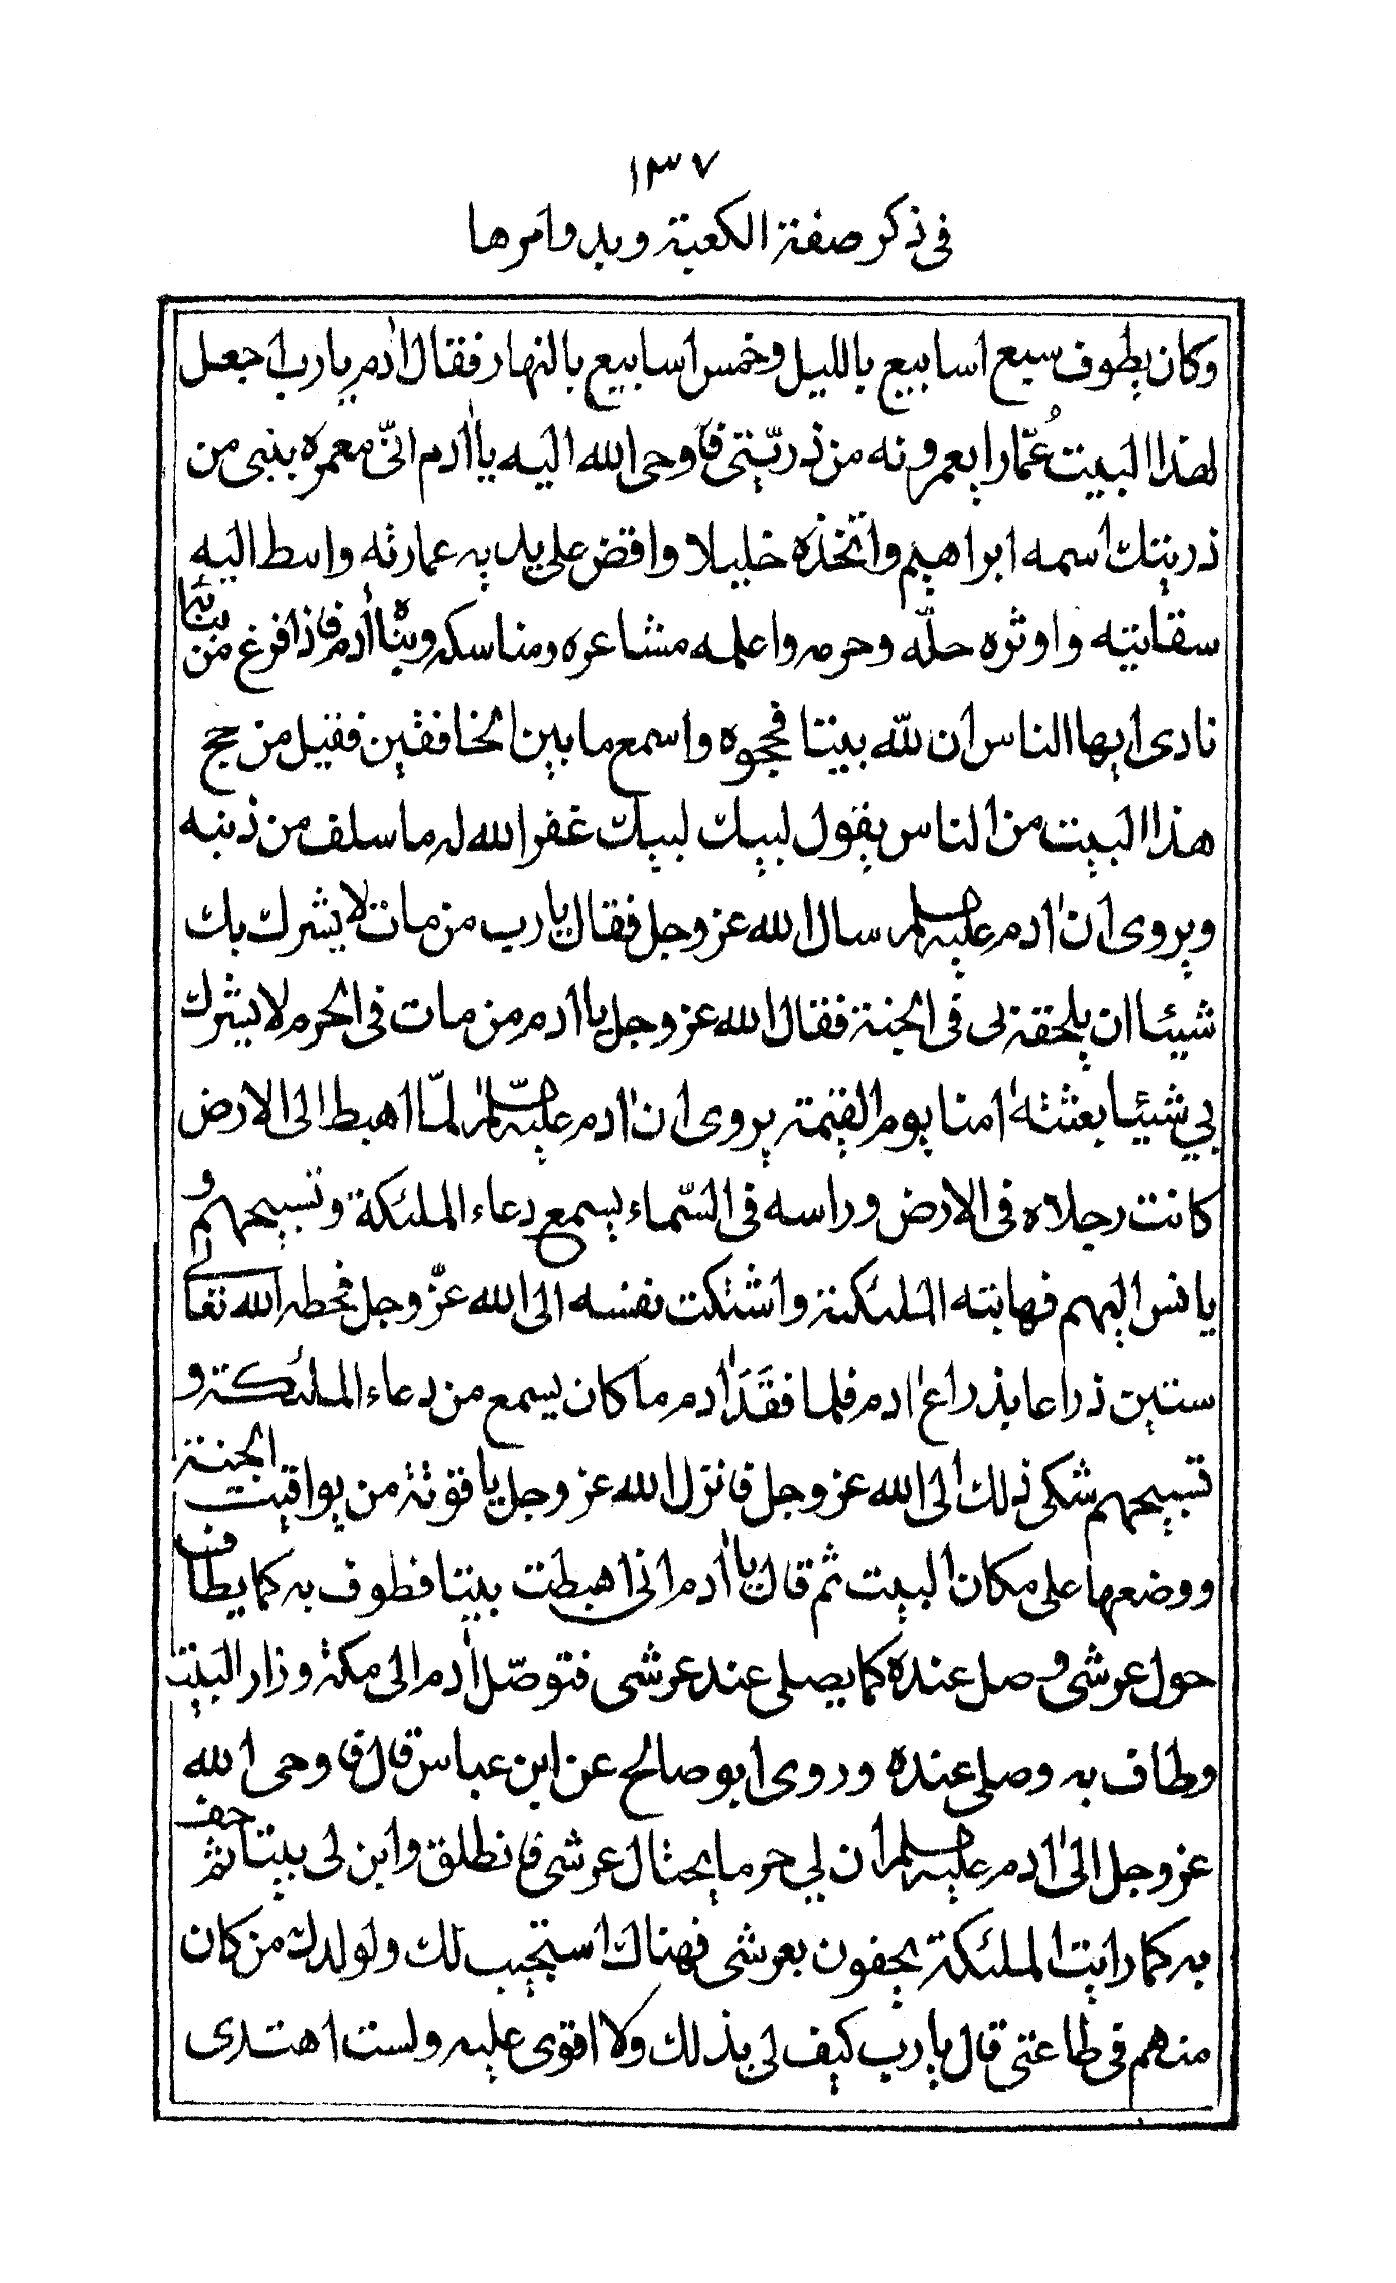 ١٣٧
فى ذكر صفة الكعبة وبدو امرها
وكان يطوف سبع اسابيع بالليل وخمس اسابيع بالنهار فقال اٰدم يا رب اجعل
لهذا البيت عُمّارا يعمرونه من ذريّتى فاوحى الله اليه يا اٰدم انّى معمره بنبى من
ذريتك اسمه ابراهيم واتّخذه خليلا واقض على يديه عمارته وابسط اليه
سقايته واوثره حلّه وحرمه واعلمه مشاعره ومناسكه وبناه اٰدم فاذا فرغ من بنائها
نادى ايها الناس ان لله بيتا فحجوه واسمع ما بين الخافقين فقيل من حج
هذا البيت من الناس يقول لبيك لبيك غفر الله له ما سلف من ذنبه
ويروى ان اٰدم عليه السلم سال الله عز وجل فقال يا رب من مات لا يشرك بك
شيئا ان يلحقه بى فى الجنة فقال الله عز وجل يا ادم من مات فى الحرم لا يشرك
بي شيئا بعثته اٰمنا يوم القيمة يروى ان اٰدم عليه السّلم لمّا اهبط الى الارض
كانت رجلاه فى الارض وراسه فى السّماء يسمع دعاء الملئكة وتسبيحهم و
يانس اليهم فهابته الملئكة واشتكت نفسه الى الله عزّ وجل فحطه الله تعالى
ستين ذراعا بذراع اٰدم فلما فقَدَ اٰدم ما كان يسمع من دعاء الملئكة و
تسبيحهم شكى ذلك الى الله عز وجل فانزل الله عز وجل ياقوتة من يواقيت الجنة
ووضعها على مكان البيت ثم قال يا اٰدم انى اهبطت بيتا فطوف به كما يطاف
حول عرشى وصل عنده كما يصلى عند عرشى فتوصّل اٰدم الى مكة وزار البيت
وطاف به وصلى عنده وروى ابو صالح عن ابن عباس قال فاوحى الله
عز وجل الى اٰدم عليه السلم ان لي حرما بحيال عرشى فانطلق وابن لى بيتا ثم حف
به كما رايت الملئكة يحفون بعرشى فهناك استجيب لك ولولدك من كان
منهم فى طاعتى قال يا رب كيف لى بذلك ولا اقوى عليه ولست اهتدى